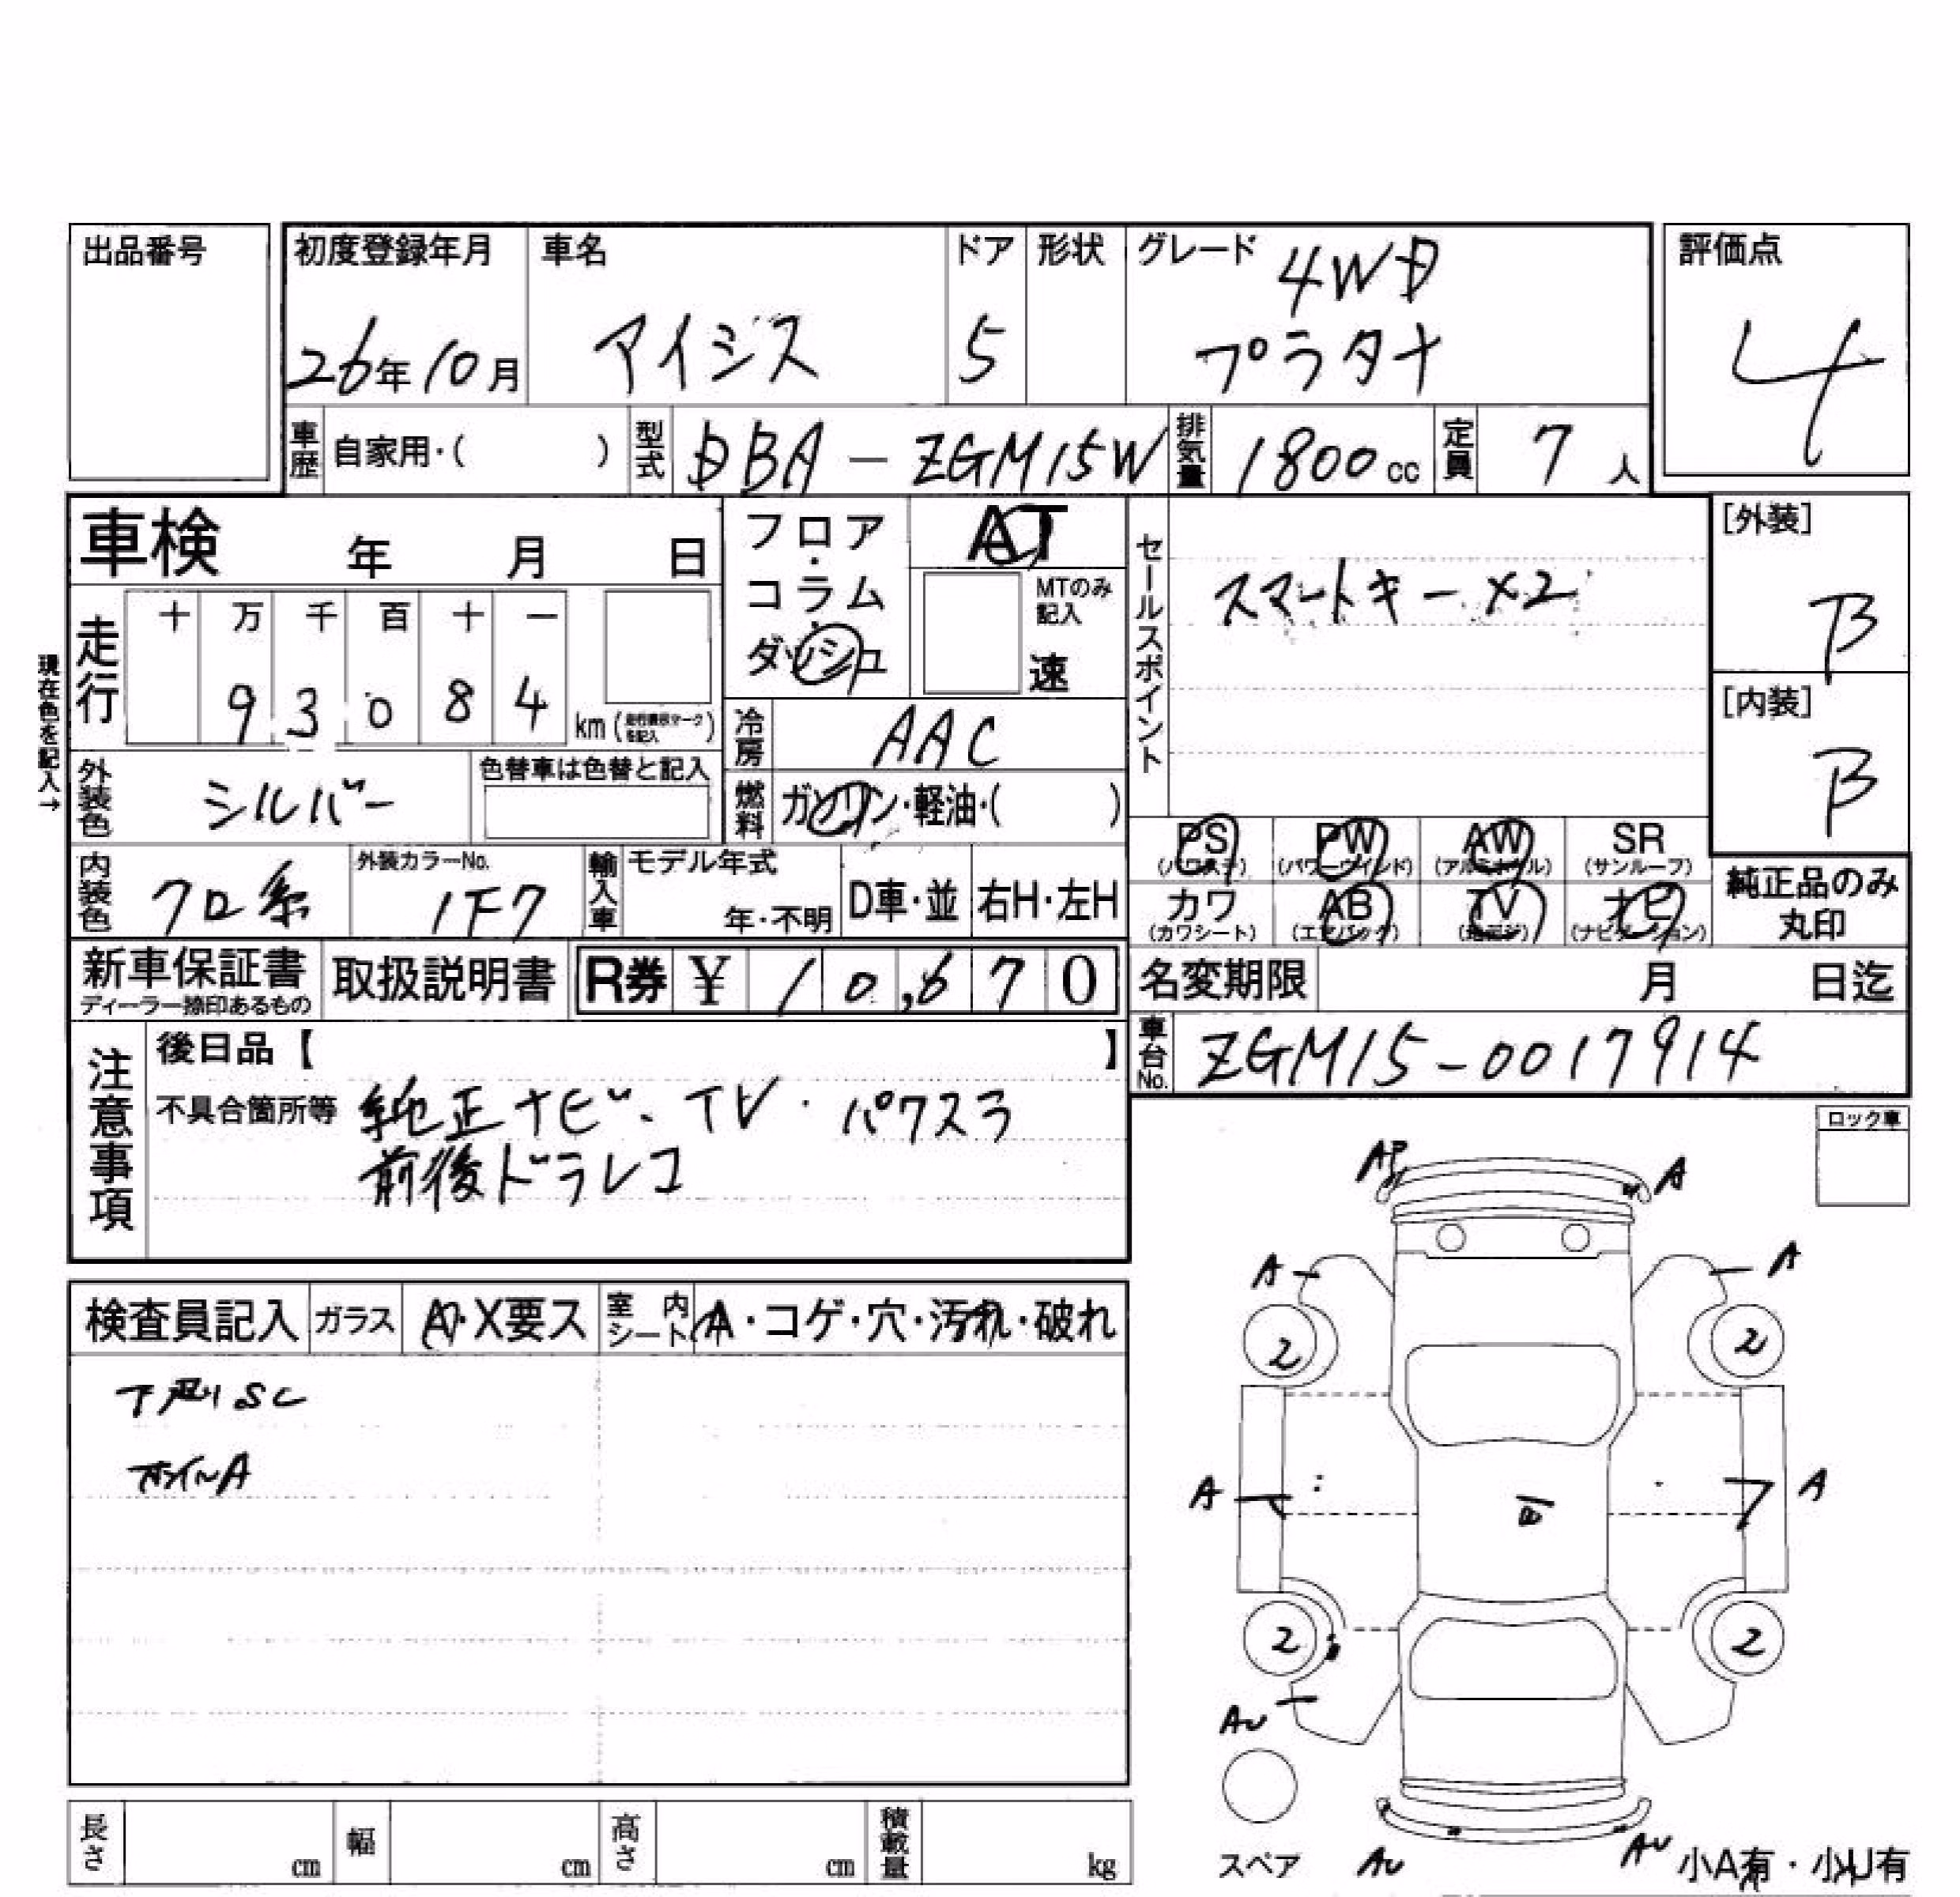 出品番号
初度登録年月 26年10月
車名 アイシス
ドア 5
形状
グレード 4WD
プラタナ
評価点 4
車歴 自家用・( )
型式 DBA-ZGM15W
排気量 1800cc
定員 7人
車検 年 月 日
フロア・コラム・ダッシュ
AT
MTのみ記入
速
セールスポイント
スマートキー ×2
[外装]
B
[内装]
B
現在色を記入→
走行 十 万 千 百 十 一
9 3 0 8 4
km
冷房 AAC
外装色 シルバー
色替車は色替と記入
燃料 ガソリン・軽油・( )
PS (パワステ) PW (パワーウインド) AW (アルミホイル) SR (サンルーフ)
カワ (カワシート) AB (エアバック) TV ナビ (ナビゲーション)
純正品のみ
丸印
内装色 クロ系
外装カラーNo. 1F7
輸入車 モデル年式 年・不明 D車・並 右H・左H
新車保証書
取扱説明書
R券 ¥ 10,670
名変期限 月 日迄
車台No. ZGM15-0017914
注意事項
後日品【 】
不具合箇所等 純正ナビ・TV・パワスラ
前後ドラレコ
ロック車
AP A
A A
検査員記入 ガラス A・X要ス 室内シート A・コゲ・穴・汚れ・破れ
2 2
下廻りSC
ホイールA
A A
2 2
AU
スペア AU AU 小A有・小U有
長さ cm 幅 cm 高さ cm 積載量 kg